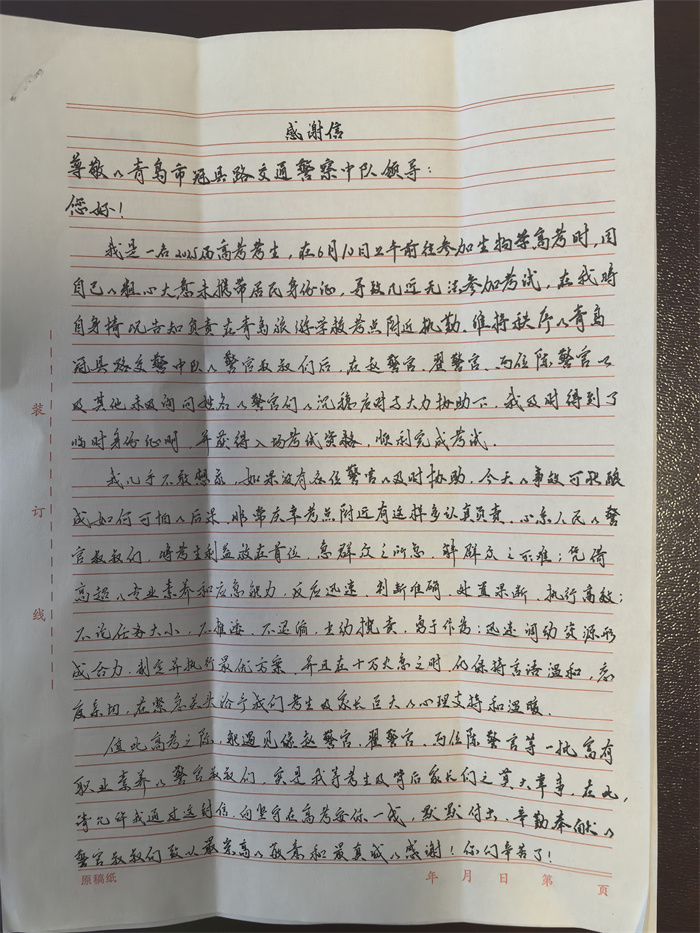 感谢信
尊敬的青岛市冠县路交通警察中队领导：
您好！
我是一名2025届高考考生，在6月10日上午前往参加生物学高考时，因
自己的粗心大意未携带居民身份证，导致几近无法参加考试，在我将
自身情况告知负责在青岛旅游学校考点附近执勤、维持秩序的青岛
冠县路交警中队的警官叔叔们后，在赵警官、翟警官、两位陈警官以
及其他未及询问姓名的警官们的沉稳应对与大力协助下，我及时得到了
临时身份证明，并获得入场考试资格，顺利完成考试。
我几乎不敢想象，如果没有各位警官的及时协助，今天的事故可能酿
成如何可怕的后果。非常庆幸考点附近有这样多认真负责、心系人民的警
官叔叔们，将考生利益放在首位，急群众之所急，解群众之所难；凭借
高超的专业素养和应急能力，反应迅速，判断准确，处置果断，执行高效；
不论任务大小，不推诿，不退缩，主动揽责，勇于作为；迅速调动资源形
成合力，制定并执行最优方案，并且在十万火急之时，仍保持言语温和，态
度亲切，在紧急关头给予我们考生及家长巨大的心理支持和温暖。
值此高考之际，能遇见像赵警官、翟警官、两位陈警官等一批富有
职业素养的警官叔叔们，实是我等考生及背后家长们之莫大幸事，在此，
请允许我通过这封信，向坚守在高考安保一线，默默付出、辛勤奉献的
警官叔叔们致以最崇高的敬意和最真诚的感谢！你们辛苦了！
装
订
线
原稿纸 年 月 日 第 页